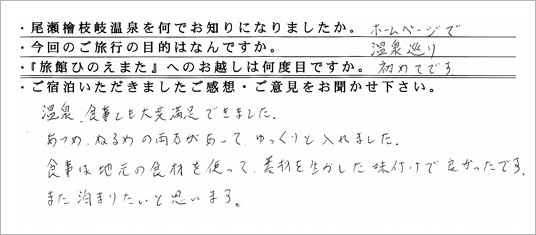 ・尾瀬檜枝岐温泉を何でお知りになりましたか。 ホームページで
・今回のご旅行の目的はなんですか。 温泉巡り
・『旅館ひのえまた』へのお越しは何度目ですか。 初めてです
・ご宿泊いただきましたご感想・ご意見をお聞かせ下さい。
温泉、食事とも大変満足できました。
あつめ、ぬるめの両方があって、ゆっくりと入れました。
食事は地元の食材を使って、素材を生かした味付けで良かったです。
また泊まりたいと思います。